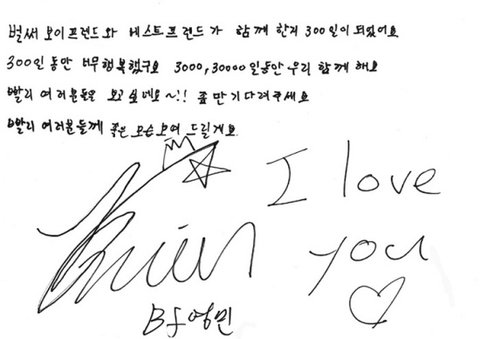 벌써 보이프렌드와 베스트프렌드가 함께 한지 300일이 되었어요
300일 동안 너무 행복했구요 3000, 30000일동안 우리 함께 해요
빨리 여러분들을 보고 싶네요~!! 좀만 기다려주세요
빨리 여러분들께 좋은 모습 보여 드릴게요
I love
you
Bf 영민